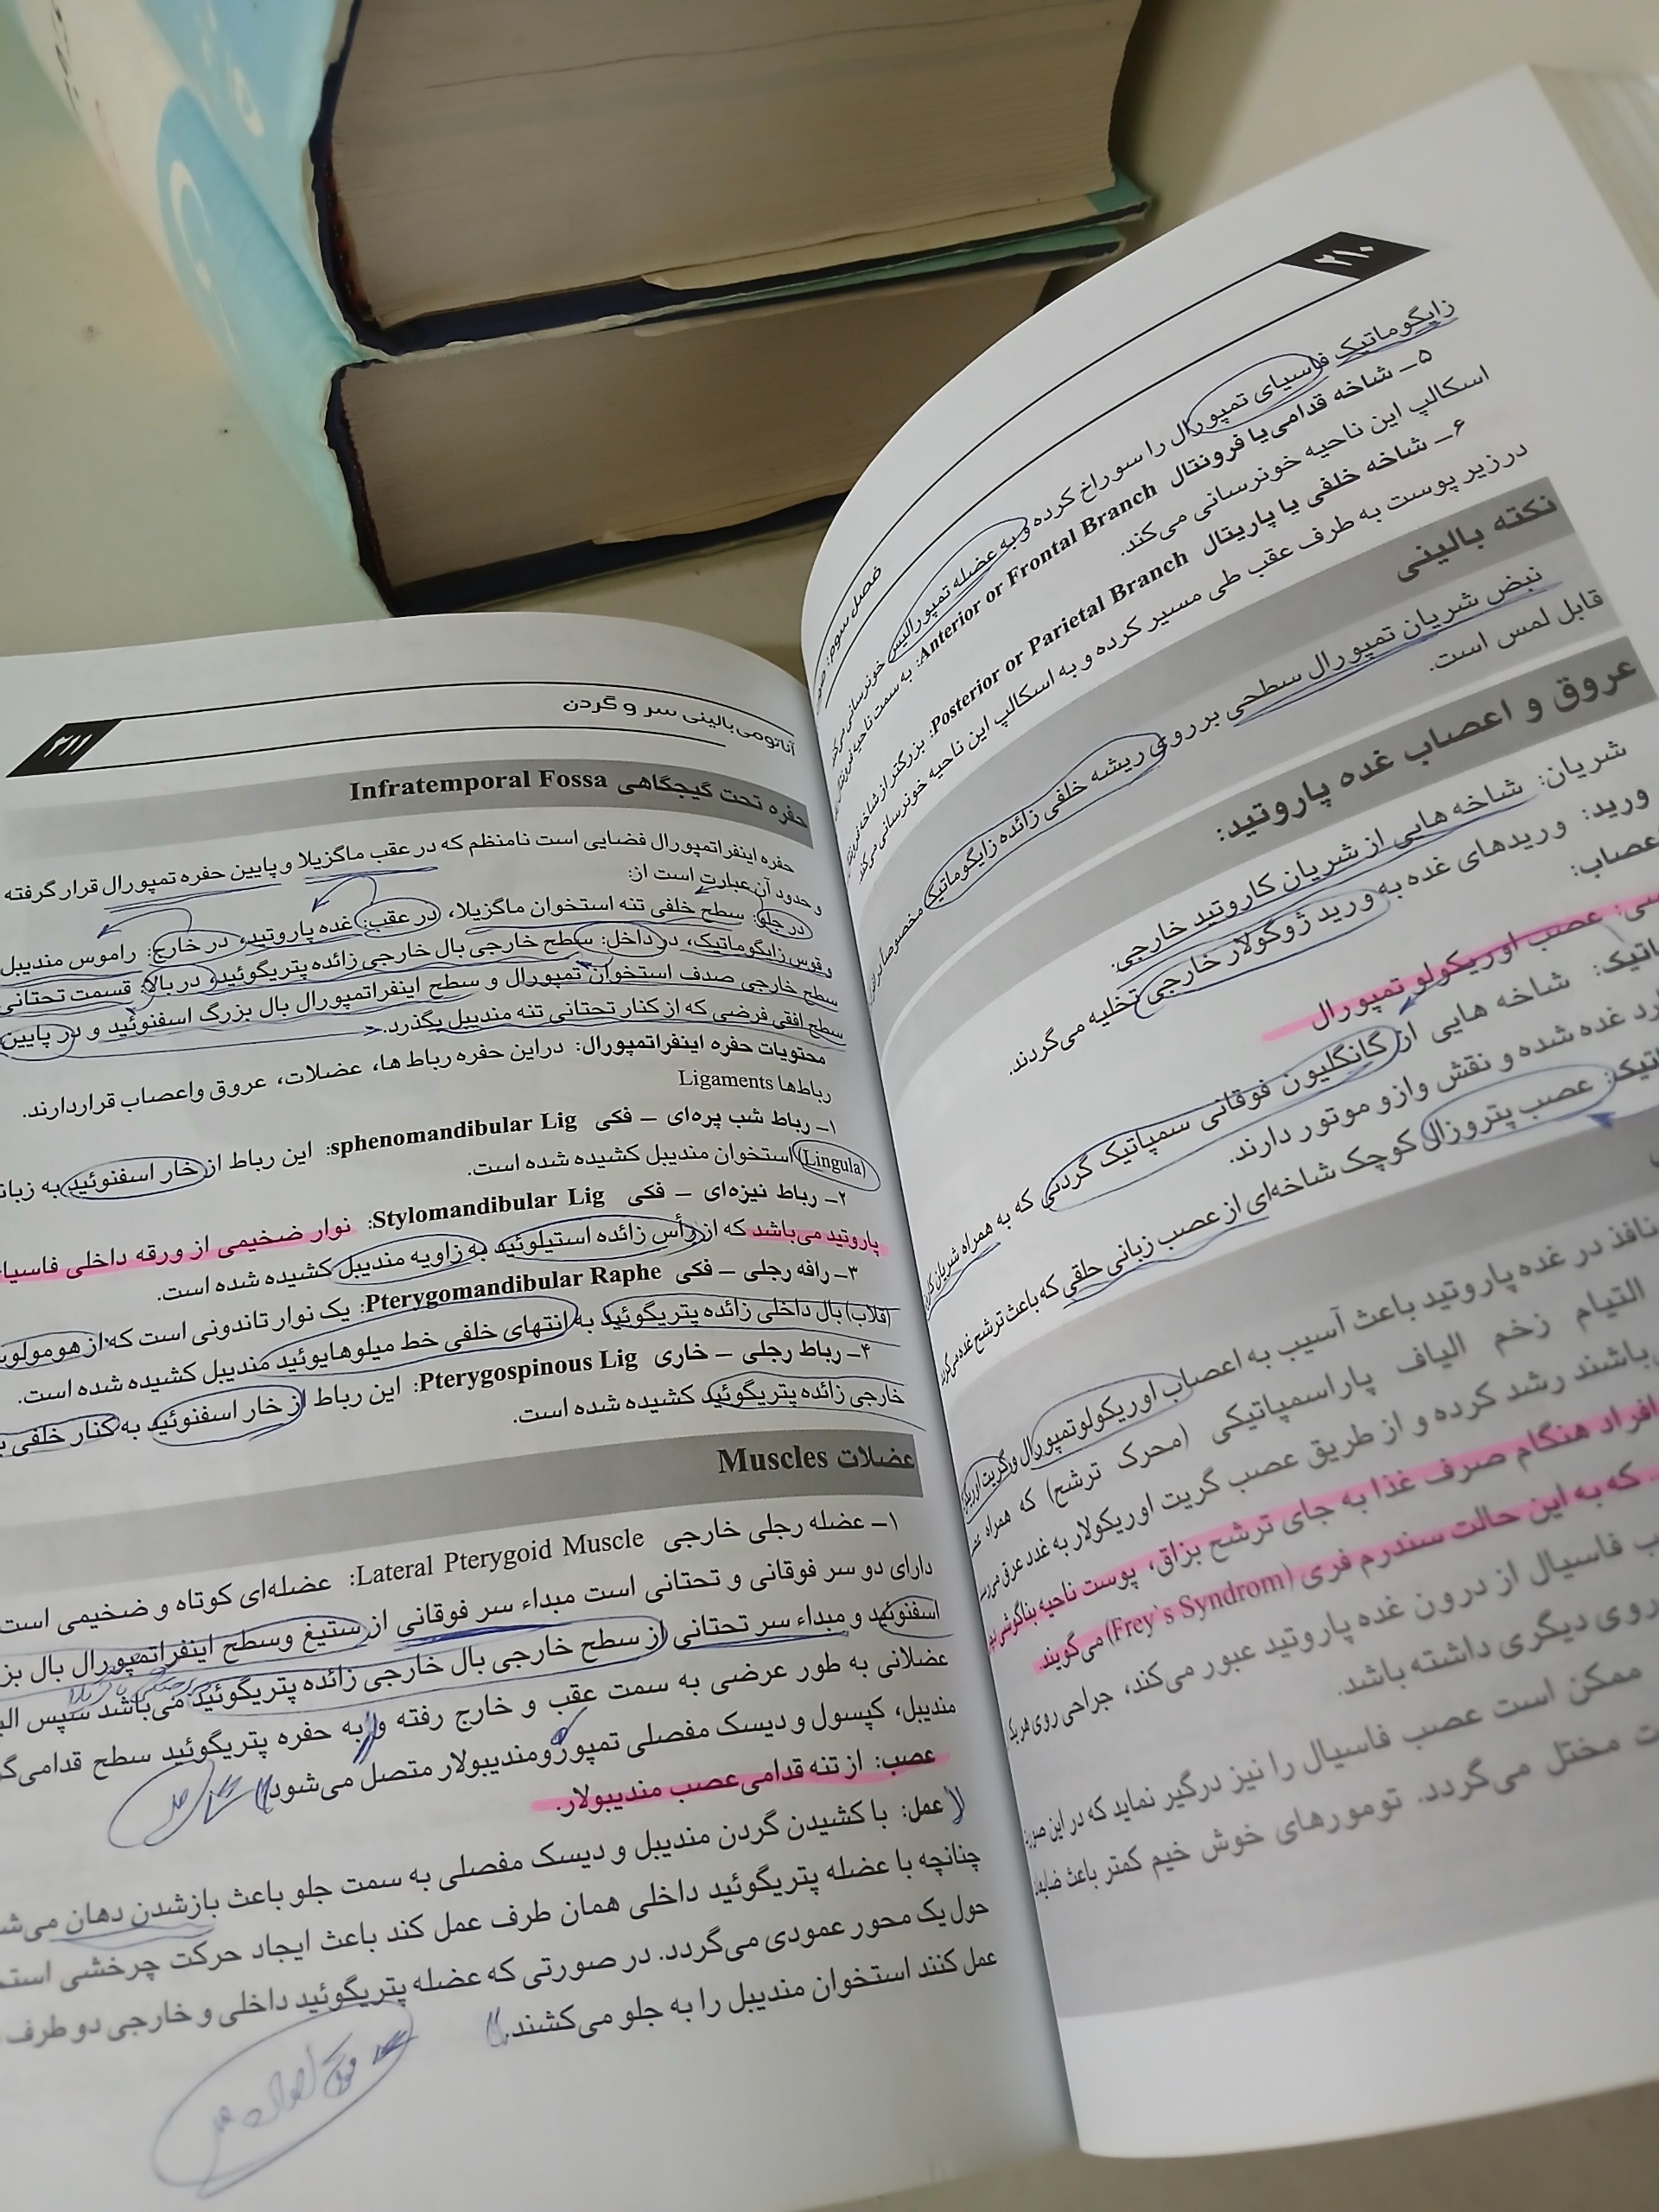 ۲۱۰
فصل سوم:
زایگوماتیک فاسیای تمپورال را سوراخ کرده و به عضله تمپورالیس خونرسانی می‌کند
۵ــ شاخه قدامی یا فرونتال Anterior or Frontal Branch: به سمت ناحیه
اسکالپ این ناحیه خونرسانی می‌کند.
۶ــ شاخه خلفی یا پاریتال Posterior or Parietal Branch: بزرگتر از شاخه
درزیر پوست به طرف عقب طی مسیر کرده و به اسکالپ این ناحیه خونرسانی می‌کند
نکته بالینی
نبض شریان تمپورال سطحی بر روی ریشه خلفی زائده زایگوماتیک مخصوصاً
قابل لمس است.
عروق و اعصاب غده پاروتید:
شریان: شاخه هایی از شریان کاروتید خارجی.
ورید: وریدهای غده به ورید ژوگولار خارجی تخلیه می‌گردند.
اعصاب:
عصب اوریکولو تمپورال
شاخه هایی از گانگلیون فوقانی سمپاتیک گردنی که به همراه شریان
غده شده و نقش وازو موتور دارند.
عصب پتروزال کوچک شاخه‌ای از عصب زبانی حلقی که باعث ترشح غده
نافذ در غده پاروتید باعث آسیب به اعصاب اوریکولوتمپورال و گریت
التیام زخم الیاف پاراسمپاتیکی (محرک ترشح) که همراه
باشند رشد کرده و از طریق عصب گریت اوریکولار به غدد عرق
افراد هنگام صرف غذا به جای ترشح بزاق، پوست ناحیه بناگوشی
که به این حالت سندرم فری (Frey's Syndrom) می‌گویند.
فاسیال از درون غده پاروتید عبور می‌کند، جراحی روی
روی دیگری داشته باشد.
ممکن است عصب فاسیال را نیز درگیر نماید که در این
مختل می‌گردد. تومورهای خوش خیم کمتر باعث
آناتومی بالینی سر و گردن
۲۱۱
حفره تحت گیجگاهی Infratemporal Fossa
حفره اینفراتمپورال فضایی است نامنظم که در عقب ماگزیلا و پایین حفره تمپورال قرار گرفته
و حدود آن عبارت است از:
در جلو: سطح خلفی تنه استخوان ماگزیلا، در عقب: غده پاروتید، در خارج: راموس مندیبل
و قوس زایگوماتیک، در داخل: سطح خارجی بال خارجی زائده پتریگوئید، در بالا: قسمت تحتانی
سطح خارجی صدف استخوان تمپورال و سطح اینفراتمپورال بال بزرگ اسفنوئید و در پایین
سطح افقی فرضی که از کنار تحتانی تنه مندیبل بگذرد.
محتویات حفره اینفراتمپورال: دراین حفره رباط ها، عضلات، عروق واعصاب قراردارند.
رباط‌ها Ligaments
۱ــ رباط شب پره‌ای ــ فکی sphenomandibular Lig: این رباط از خار اسفنوئید به
(Lingula) استخوان مندیبل کشیده شده است.
۲ــ رباط نیزه‌ای ــ فکی Stylomandibular Lig: نوار ضخیمی از ورقه داخلی
پاروتید می‌باشد که از رأس زائده استیلوئید به زاویه مندیبل کشیده شده است.
۳ــ رافه رجلی ــ فکی Pterygomandibular Raphe: یک نوار تاندونی است که از
(قلاب) بال داخلی زائده پتریگوئید به انتهای خلفی خط میلوهایوئید مندیبل کشیده شده است.
۴ــ رباط رجلی ــ خاری Pterygospinous Lig: این رباط از خار اسفنوئید به کنار خلفی
خارجی زائده پتریگوئید کشیده شده است.
عضلات Muscles
۱ــ عضله رجلی خارجی Lateral Pterygoid Muscle: عضله‌ای کوتاه و ضخیمی است
دارای دو سر فوقانی و تحتانی است مبداء سر فوقانی از ستیغ وسطح اینفراتمپورال بال
اسفنوئید و مبداء سر تحتانی از سطح خارجی بال خارجی زائده پتریگوئید می‌باشد سپس
عضلانی به طور عرضی به سمت عقب و خارج رفته و به حفره پتریگوئید سطح قدامی
مندیبل، کپسول و دیسک مفصلی تمپورومندیبولار متصل می‌شود
عصب: از تنه قدامی عصب مندیبولار.
عمل: با کشیدن گردن مندیبل و دیسک مفصلی به سمت جلو باعث بازشدن دهان
چنانچه با عضله پتریگوئید داخلی همان طرف عمل کند باعث ایجاد حرکت چرخشی
حول یک محور عمودی می‌گردد. در صورتی که عضله پتریگوئید داخلی و خارجی دو طرف
عمل کنند استخوان مندیبل را به جلو می‌کشند.